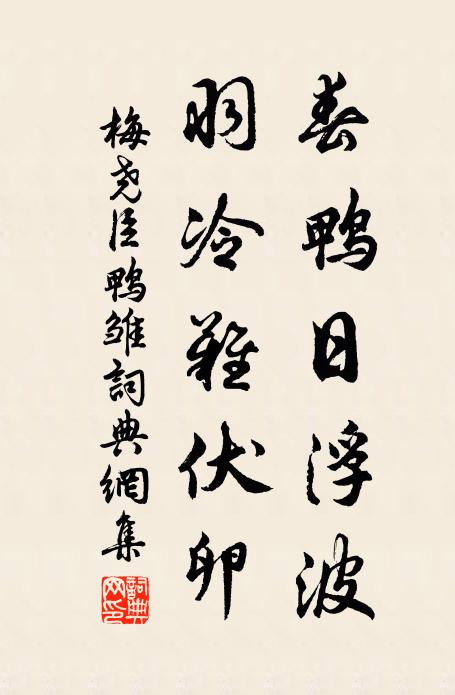 春鸭日浮波
羽冷难伏卵
梅尧臣鸭雏詞典網集
詞典网印